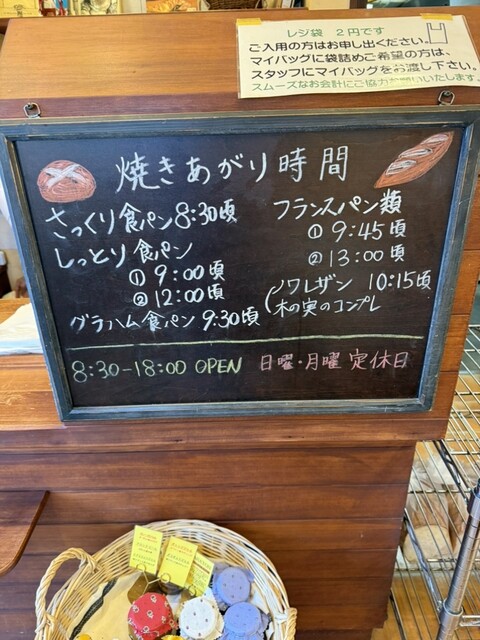 レジ袋 2円です
ご入用の方はお申し出ください。
マイバッグに袋詰めご希望の方は、
スタッフにマイバッグをお渡し下さい。
スムーズなお会計にご協力お願いいたします。
焼きあがり時間
さっくり食パン 8:30頃
しっとり食パン
① 9:00頃
② 12:00頃
グラハム食パン 9:30頃
フランスパン類
① 9:45頃
② 13:00頃
ノワレザン 10:15頃
木の実のコンプレ
8:30-18:00 OPEN 日曜・月曜 定休日